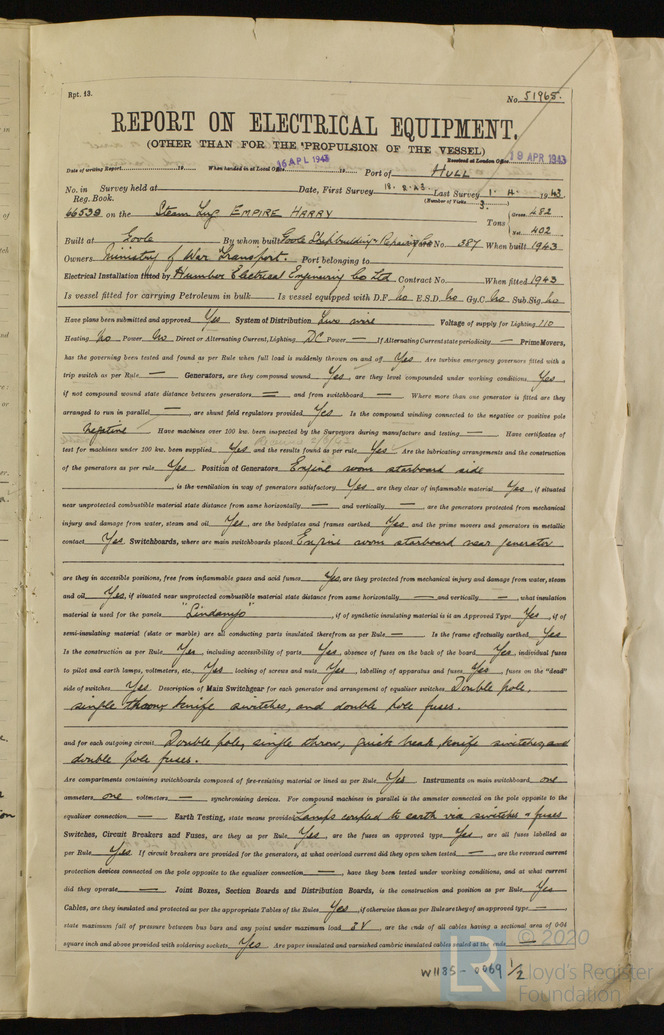 Rpt. 13.
No. 51965.
REPORT ON ELECTRICAL EQUIPMENT.
(OTHER THAN FOR THE PROPULSION OF THE VESSEL)
16 APL 1943
Received at London Office 19 APR 1943
Date of writing Report 19 When handed in at Local Office 19 Port of HULL
No. in Survey held at Date, First Survey 18. 2. 43 Last Survey 1. 4. 1943
Reg. Book. (Number of Visits 3.
66538 on the Steam Lug EMPIRE HARRY Tons Gross 482
Net 402
Built at Goole By whom built Goole Shipbuilding & Repairing Co Yard No. 387 When built 1943
Owners Ministry of War Transport. Port belonging to
Electrical Installation fitted by Humber Electrical Engineering Co Ltd Contract No. When fitted 1943
Is vessel fitted for carrying Petroleum in bulk Is vessel equipped with D.F. No E.S.D. No Gy.C. No Sub.Sig. No
Have plans been submitted and approved Yes System of Distribution Two wire Voltage of supply for Lighting 110
Heating No Power No Direct or Alternating Current, Lighting DC Power — If Alternating Current state periodicity — Prime Movers,
has the governing been tested and found as per Rule when full load is suddenly thrown on and off Yes Are turbine emergency governors fitted with a
trip switch as per Rule — Generators, are they compound wound Yes, are they level compounded under working conditions Yes,
if not compound wound state distance between generators — and from switchboard — Where more than one generator is fitted are they
arranged to run in parallel —, are shunt field regulators provided Yes Is the compound winding connected to the negative or positive pole
Negative Have machines over 100 kw. been inspected by the Surveyors during manufacture and testing — Have certificates of
test for machines under 100 kw. been supplied Yes and the results found as per rule Yes Are the lubricating arrangements and the construction
of the generators as per rule Yes Position of Generators Engine room starboard side
, is the ventilation in way of generators satisfactory Yes are they clear of inflammable material Yes, if situated
near unprotected combustible material state distance from same horizontally — and vertically —, are the generators protected from mechanical
injury and damage from water, steam and oil Yes, are the bedplates and frames earthed Yes and the prime movers and generators in metallic
contact Yes Switchboards, where are main switchboards placed Engine room starboard near generator
are they in accessible positions, free from inflammable gases and acid fumes Yes, are they protected from mechanical injury and damage from water, steam
and oil Yes, if situated near unprotected combustible material state distance from same horizontally — and vertically —, what insulation
material is used for the panels "Sindanyo", if of synthetic insulating material is it an Approved Type Yes, if of
semi-insulating material (slate or marble) are all conducting parts insulated therefrom as per Rule — Is the frame effectually earthed Yes
Is the construction as per Rule Yes, including accessibility of parts Yes, absence of fuses on the back of the board Yes, individual fuses
to pilot and earth lamps, voltmeters, etc. Yes locking of screws and nuts Yes, labelling of apparatus and fuses Yes, fuses on the "dead"
side of switches Yes Description of Main Switchgear for each generator and arrangement of equaliser switches Double pole,
single throw knife switches, and double pole fuses.
and for each outgoing circuit Double pole, single throw, quick break, knife switches, and
double pole fuses.
Are compartments containing switchboards composed of fire-resisting material or lined as per Rule Yes Instruments on main switchboard one
ammeters one voltmeters — synchronising devices. For compound machines in parallel is the ammeter connected to the pole opposite to the
equaliser connection — Earth Testing, state means provided Lamps coupled to earth via switches & fuses
Switches, Circuit Breakers and Fuses, are they as per Rule Yes, are the fuses an approved type Yes, are all fuses labelled as
per Rule Yes If circuit breakers are provided for the generators, at what overload current did they open when tested —, are the reversed current
protection devices connected on the pole opposite to the equaliser connection —, have they been tested under working conditions, and at what current
did they operate — Joint Boxes, Section Boards and Distribution Boards, is the construction and position as per Rule Yes
Cables, are they insulated and protected as per the appropriate Tables of the Rules Yes, if otherwise than as per Rule are they of an approved type —,
state maximum fall of pressure between bus bars and any point under maximum load 3V, are the ends of all cables having a sectional area of 0·04
square inch and above provided with soldering sockets Yes Are paper insulated and varnished cambric insulated cables sealed at the ends —
© 2020
Lloyd's Register
Foundation
W1185-0069 1/2